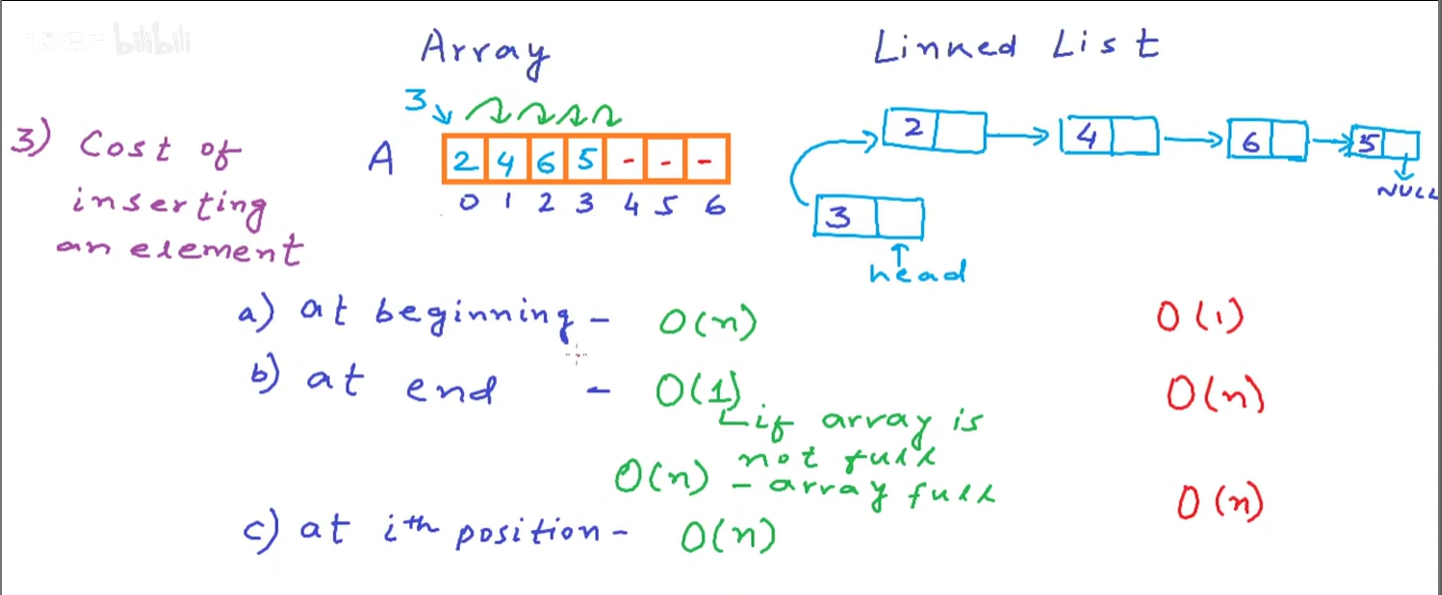 bilibili
Array Linked List
3
3) Cost of inserting an element
A 2 4 6 5 - - -
0 1 2 3 4 5 6
2 4 6 5
NULL
3
head
a) at beginning - O(n) O(1)
b) at end - O(1) O(n)
if array is not full
O(n) - array full
c) at ith position - O(n) O(n)